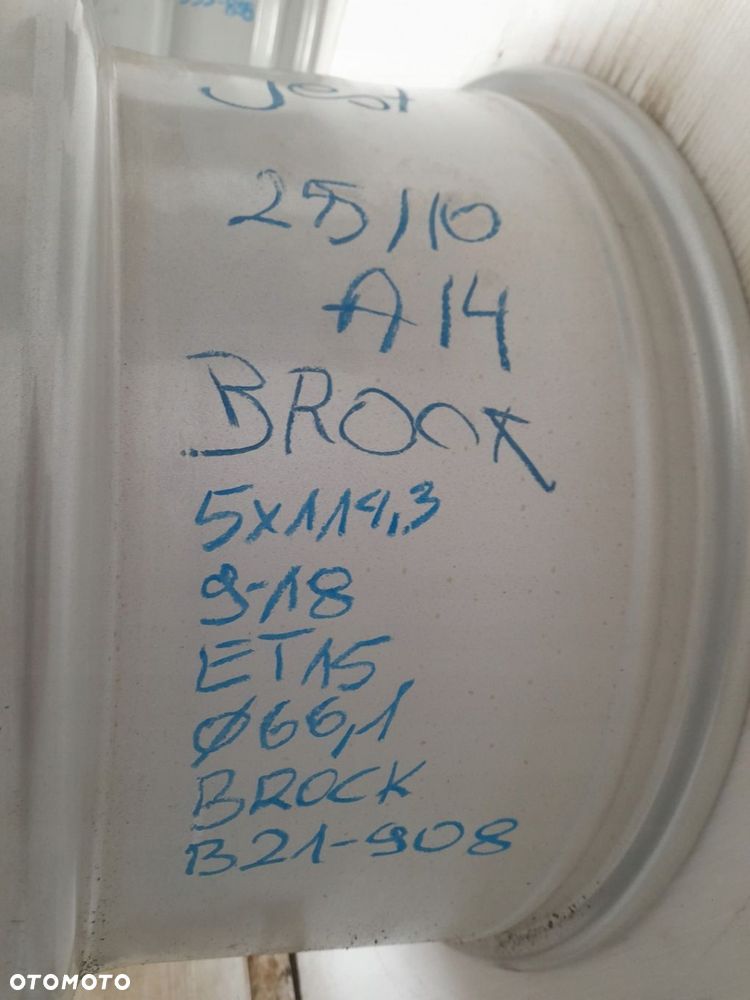 Jest
25/10
A14
BROCK
5x114,3
9-18
ET15
Ø66,1
BROCK
B21-908
OTOMOTO